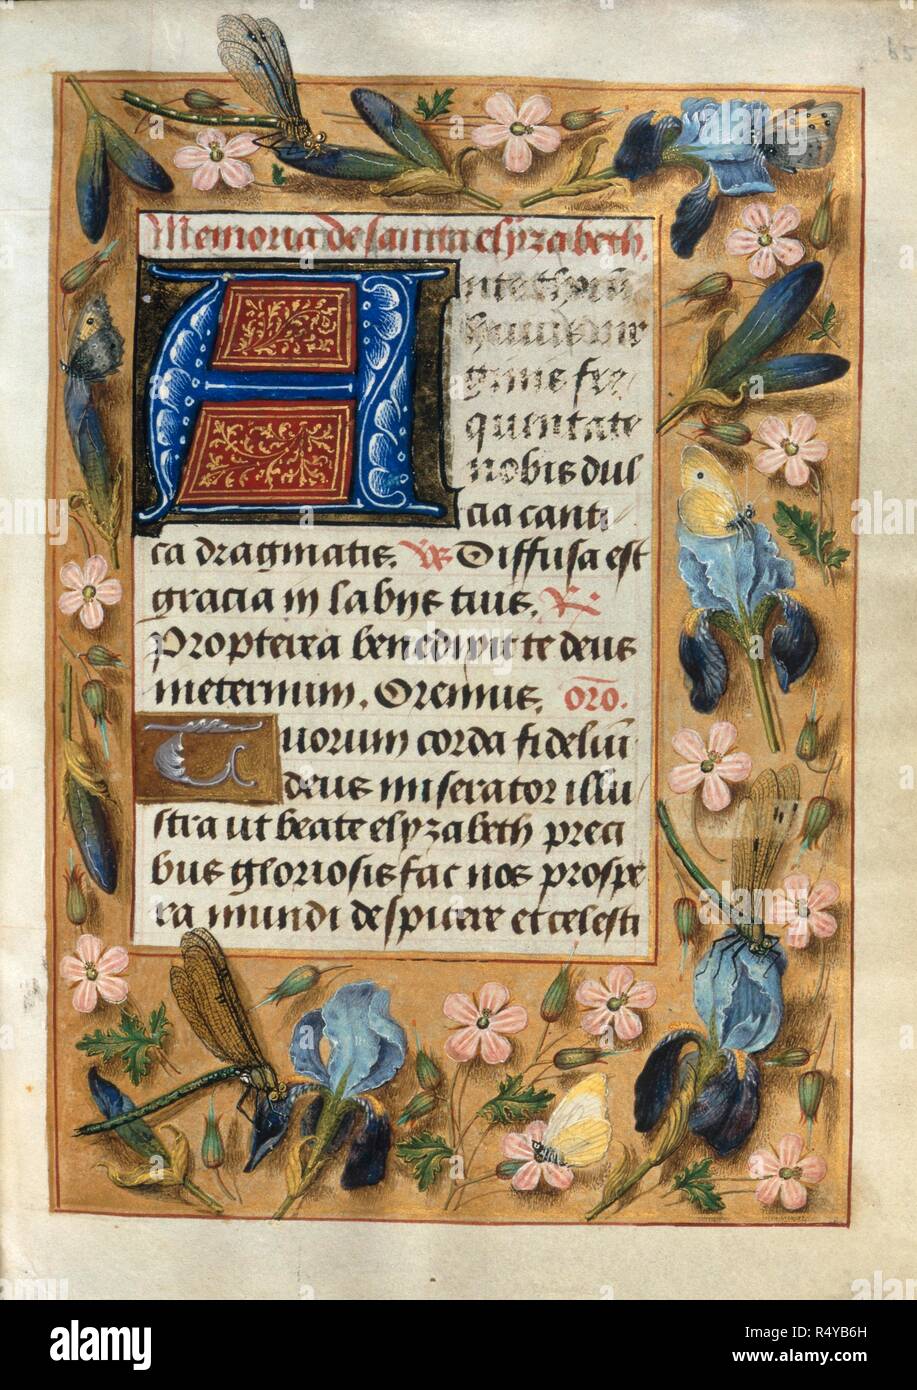 Memoria de sancta elyzabeth.
Ante thorū
huius vir
ginis fre
quentate
nobis dul
cia canti
ca dragmatis. V Diffusa est
gracia in labijs tuis. R
Propterea benedixit te deus
in eternum. Oremus. oro.
Tuorum corda fideliū
deus miserator illu
stra ut beate elyzabeth preci
bus gloriosis fac nos prospe
ra mundi despicere et celesti
alamy
Image ID: R4YB6H
www.alamy.com